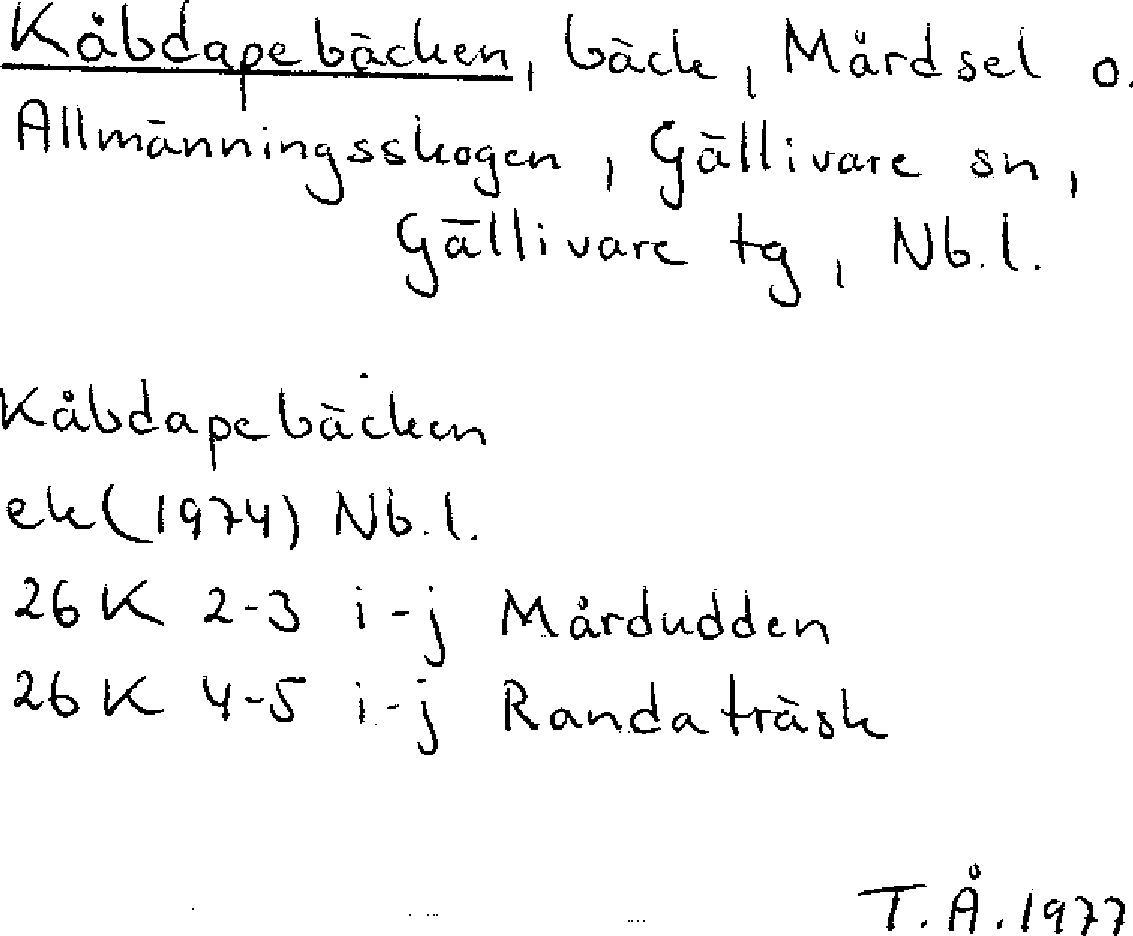 Kåbdapebäcken, bäck, Mårdsel o.
Allmänningsskogen, Gällivare sn,
Gällivare tg, Nb.l.
Kåbdapebäcken
ek (1974) Nb.l.
26 K 2-3 i-j Mårdudden
26 K 4-5 i-j Randaträsk
T.Å.1977